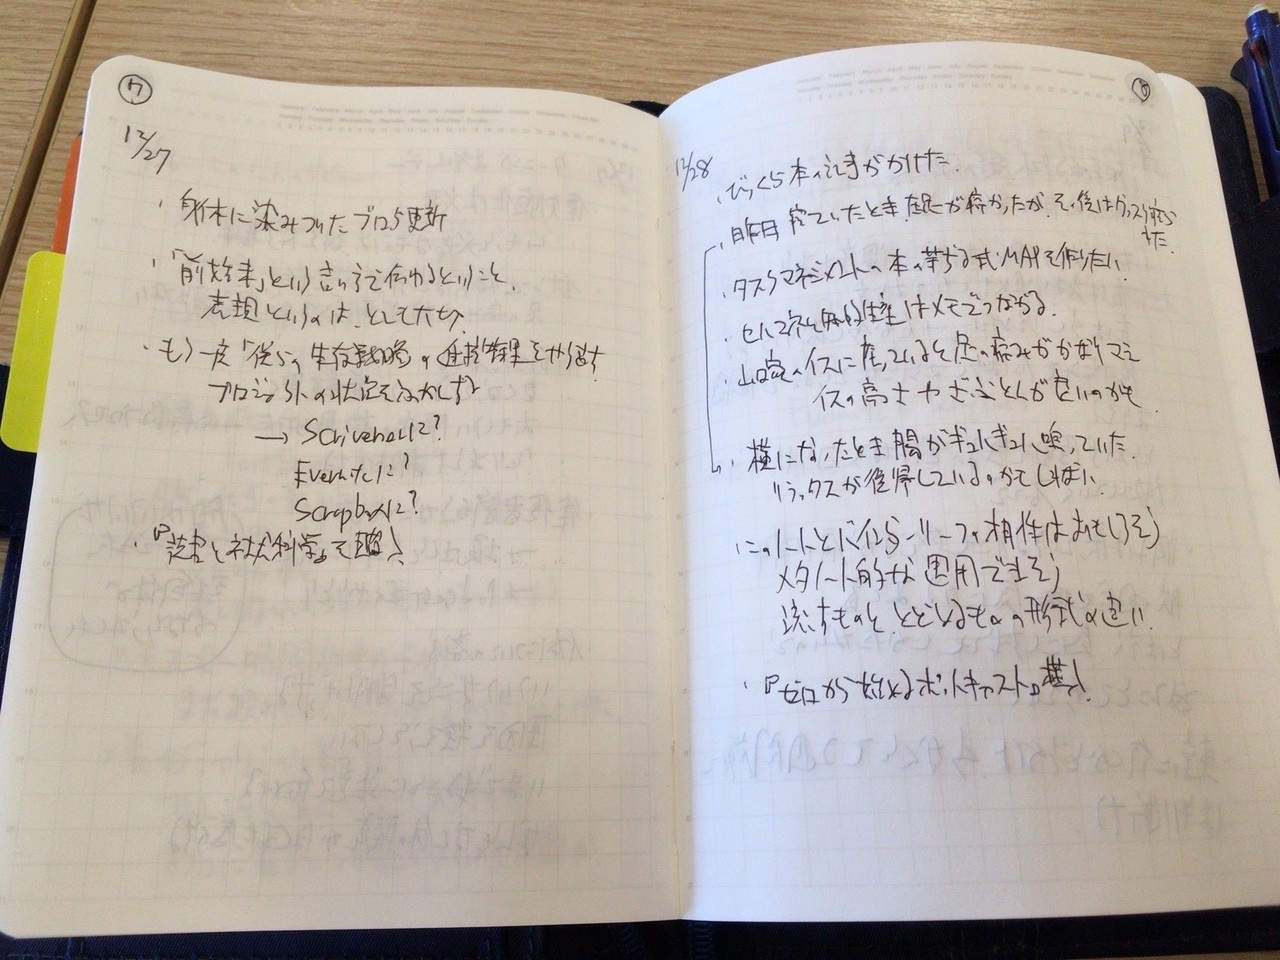 7
12/27
・身体に染みついたブログ更新
・「前始末」という言い方で伝わるということ。
表現というのは、とても大切。
・もう一度「僕らの生存戦略」の進捗結果をやり直す
プロジェクトの状況をふかしぎ
→ Scrivenerに?
Evernoteに?
Scrapboxに?
・『芸術と社会科学』を
8
12/28
・びっくら本の記事がかけた。
・昨日寝ていたとき足が痛かったが、その後はグッスリ寝られた。
・タスクマネジメントの本の芋づる式MAPを作りたい
・セルマネと知的生産はメモでつながる。
・のイスに座っていると足の痛みがかなりマシ
イスの高さやざぶとんが良いのかも
・横になったとき腸がギュルギュル鳴っていた。
リラックスが復帰しているのかもしれない。
・このノートとバイシクリーフの相性はおもしろそう
メタノート的な運用できそう
流すものと、とどめるものの形式の違い。
・『ゼロから始めるポッドキャスト』